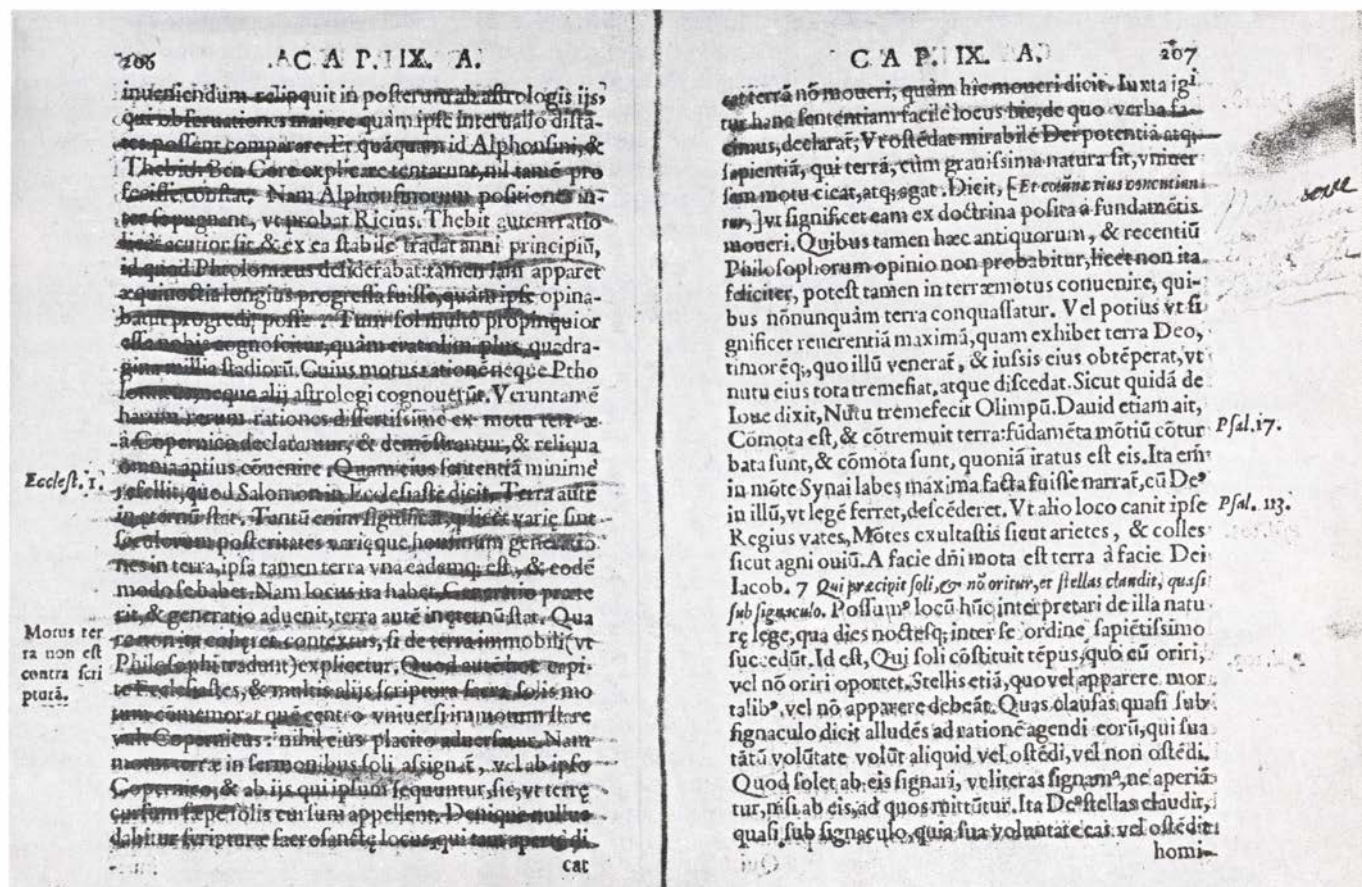 206 CAP. IX. A.
inueniendum relinquit in posterum ab astrologis ijs,
qui obseruationes maiore quàm ipse interuallo distã-
tes possent comparare. Et quáquam id Alphonsini, &
Thebith Ben Core explicare tentarunt, nil tamẽ pro
fecisse constat. Nam Alphonsinorum positiones in-
ter se pugnant, vt probat Ricius. Thebit autem ratio
licèt acutior sit & ex ea stabile tradat anni principiũ,
id quod Ptholomæus desiderabat: tamen iam apparet
æquinoctia longius progressa fuisse, quàm ipse opina-
batur progredi posse. Tum sol multò propinquior
esse nobis cognoscitur, quàm erat olim plus quadra-
gina millia stadiorũ. Cuius motus rationẽ neque Ptho
lomæus neque alij astrologi cognouerũt. Veruntamẽ
harum rerum rationes dissertissimè ex motu terræ
à Copernico declarantur, & demõstrantur, & reliqua
omnia aptius cõuenire. Quam eius sententiã minimè
refellit, quod Salomon in Ecclesiaste dicit, Terra autẽ
in æternũ stat. Tantũ enim significat, q̃ licèt varię sint
sæculorum posteritates varięque hominum generatio
nes in terra, ipsa tamen terra vna eademq; est, & eodẽ
modo se habet. Nam locus ita habet, Generatio præte
rit, & generatio aduenit, terra autẽ in æternũ stat. Qua
re non im cohæret contextus, si de terra immobili (vt
Philosophi tradunt) explicetur. Quod autẽ hoc capi-
te Ecclesiastes, & multis alijs scriptura sacra solis mo
tum cõmemorat quẽ centro vniuersi immotum stare
vult Copernicus: nihil eius placito aduersatur. Nam
motus terræ in sermonibus soli assignat̃, vel ab ipso
Copernico, & ab ijs qui ipsum sequuntur, sic, vt terrę
cursum sæpe solis cursum appellent. Denique nullus
dabitur scripturæ sacrosanctę locus, qui tam apertè di
cat
Ecclest. 1.
Motus ter
ra non est
contra scri
pturã.
CAP. IX. A. 207
cat terrã nõ moueri, quàm hîc moueri dicit. Iuxta igi
tur hanc sententiam facilè locus hic, de quo verba fa-
cimus, declarat̃; Vt ostẽdat mirabilẽ Dei potentiã atq;
sapientiã, qui terrã, cùm grauissima natura sit, vniuer
sam motu cieat, atq; agat. Dicit, [Et colũnæ eius concutiun
tur,] vt significet eam ex doctrina posita à fundamẽtis
moueri. Quibus tamen hæc antiquorum, & recentiũ
Philosophorum opinio non probabitur, licet non ita
feliciter, potest tamen in terræmotus conuenire, qui-
bus nõnunquàm terra conquassatur. Vel potius vt si
gnificet reuerentiã maximã, quam exhibet terra Deo,
timorẽq;, quo illũ venerat̃, & iussis eius obtẽperat, vt
nutu eius tota tremefiat, atque discedat. Sicut quidã de
Ioue dixit, Nutu tremefecit Olimpũ. Dauid etiam ait,
Cõmota est, & cõtremuit terra: fũdamẽta mõtiũ cõtur
bata sunt, & cõmota sunt, quoniã iratus est eis. Ita em̃
in mõte Synai labes maxima facta fuisse narrat, cũ Deꝰ
in illũ, vt legẽ ferret, descẽderet. Vt alio loco canit ipse
Regius vates, Mõtes exultastis sicut arietes, & colles
sicut agni ouiũ. A facie dñi mota est terra à facie Dei
Iacob. 7 Qui præcipit soli, & nõ oritur, et stellas claudit, quasi
sub signaculo. Possumꝰ locũ hũc interpretari de illa natu
rę lege, qua dies noctesq; inter se ordine sapiẽtissimo
succedũt. Id est, Qui soli cõstituit tẽpus, quo eũ oriri,
vel nõ oriri oportet. Stellis etiã, quo vel apparere mor
talibꝰ, vel nõ apparere debeãt. Quas clausas quasi sub
signaculo dicit alludẽs ad rationẽ agendi eorũ, qui sua
tãtũ volũtate volũt aliquid vel ostẽdi, vel non ostẽdi.
Quod solet ab eis signari, vt literas signamꝰ, ne aperiã
tur, nisi ab eis, ad quos mittũtur. Ita Deꝰ stellas claudit,
quasi sub signaculo, quia sua voluntate eas vel ostẽdit
homi-
Psal. 17.
Psal. 113.